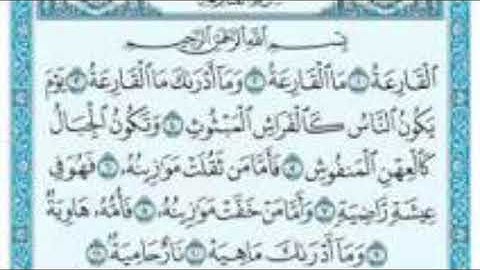 بِسْمِ ٱللَّهِ ٱلرَّحْمَٰنِ ٱلرَّحِيمِ
ٱلْقَارِعَةُ ۝١ مَا ٱلْقَارِعَةُ ۝٢ وَمَآ أَدْرَىٰكَ مَا ٱلْقَارِعَةُ ۝٣ يَوْمَ
يَكُونُ ٱلنَّاسُ كَٱلْفَرَاشِ ٱلْمَبْثُوثِ ۝٤ وَتَكُونُ ٱلْجِبَالُ
كَٱلْعِهْنِ ٱلْمَنفُوشِ ۝٥ فَأَمَّا مَن ثَقُلَتْ مَوَٰزِينُهُۥ ۝٦ فَهُوَ فِى
عِيشَةٍ رَّاضِيَةٍ ۝٧ وَأَمَّا مَنْ خَفَّتْ مَوَٰزِينُهُۥ ۝٨ فَأُمُّهُۥ هَاوِيَةٌ
۝٩ وَمَآ أَدْرَىٰكَ مَا هِيَهْ ۝١٠ نَارٌ حَامِيَةٌۢ ۝١١